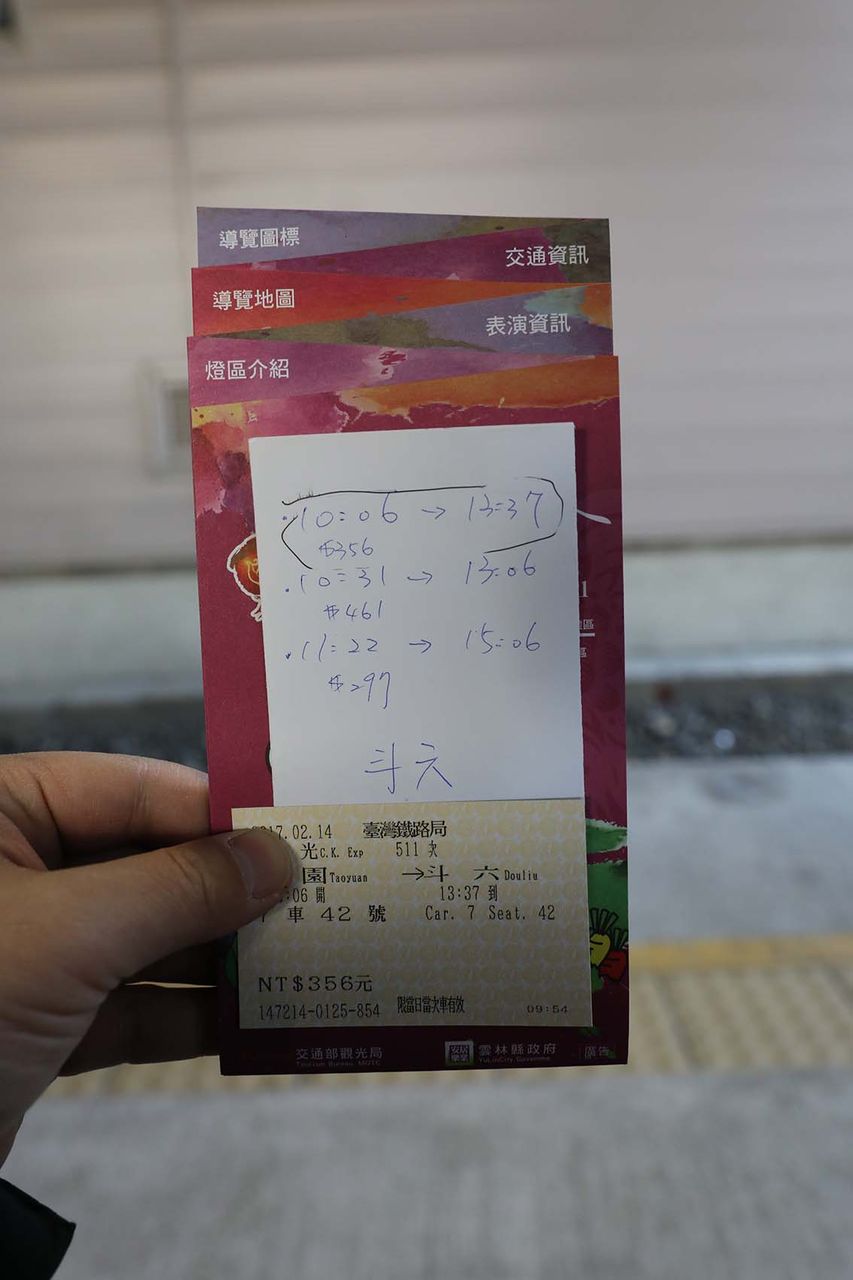 導覽圖標
交通資訊
導覽地圖
表演資訊
燈區介紹
10:06 → 13:37
$356
10:31 → 13:06
$461
11:22 → 15:06
$297
斗六
17.02.14 臺灣鐵路局
光C.K. Exp 511 次
園Taoyuan →斗 六 Douliu
:06 開 13:37 到
車 42 號 Car. 7 Seat. 42
NT$356元
147214-0125-854 限當日當次車有效 09:54
交通部觀光局 雲林縣政府 廣告
Tourism Bureau, MOTC